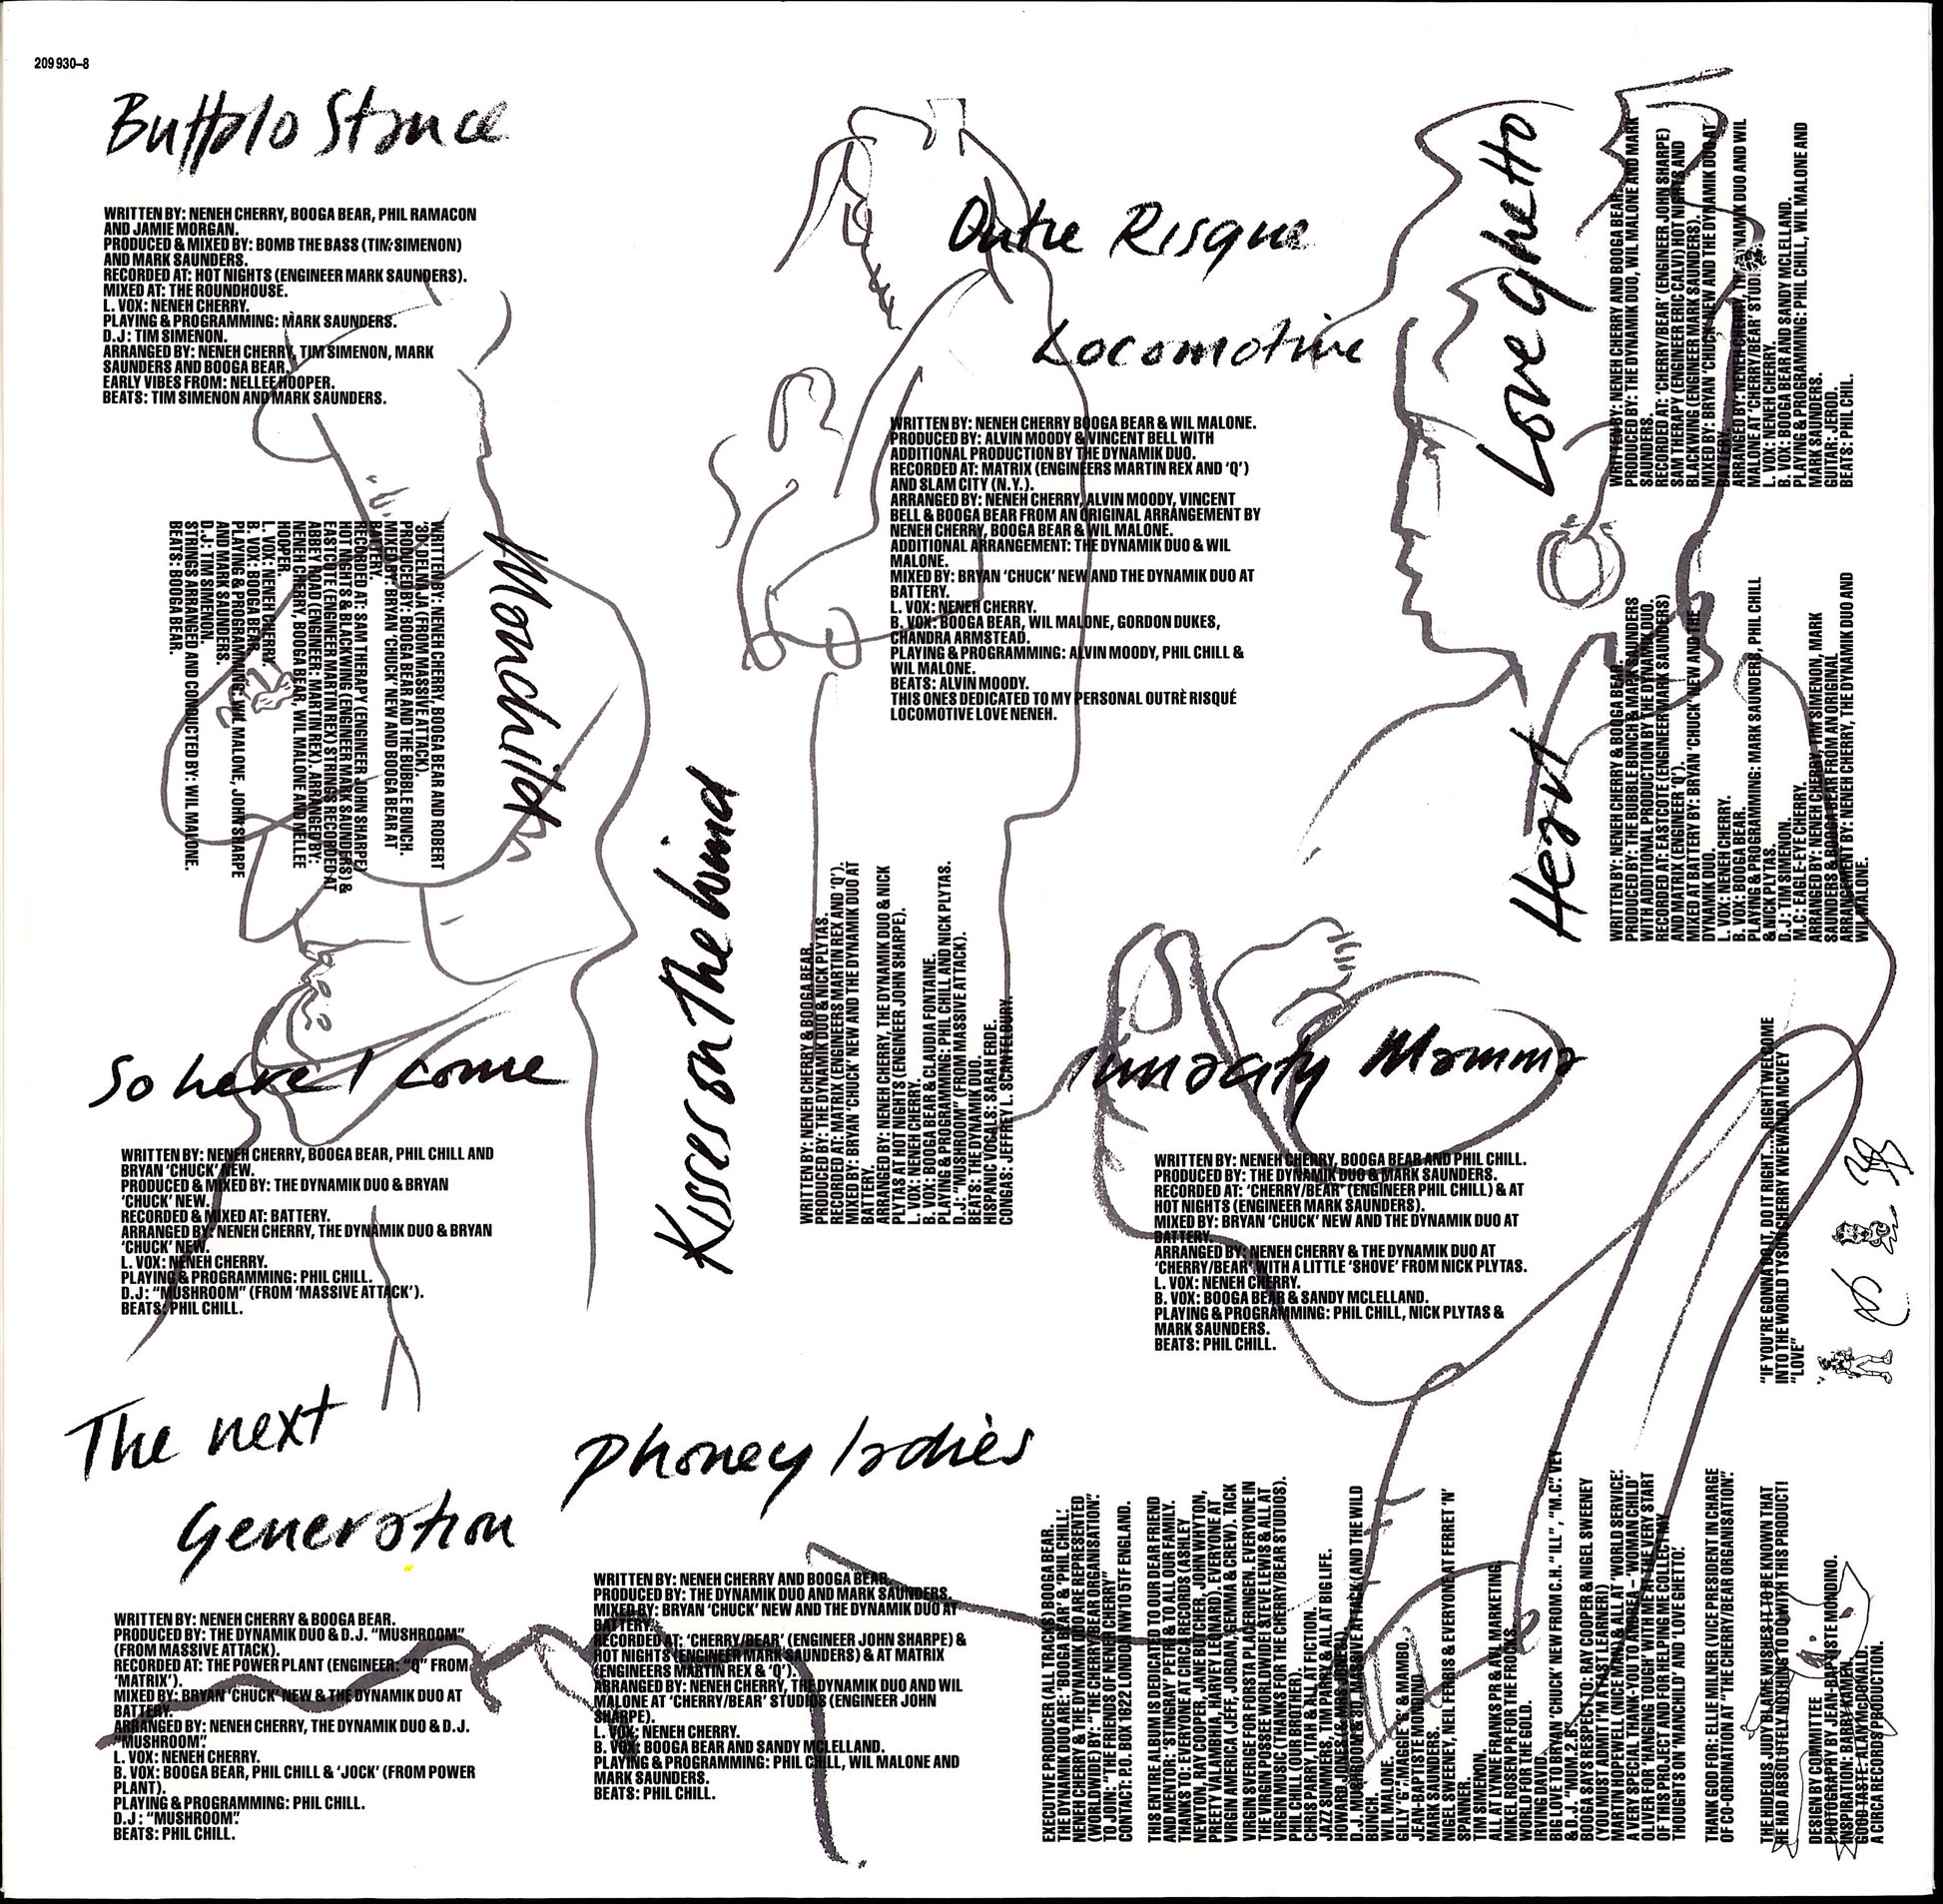 209 930-8
Buffalo Stance
WRITTEN BY: NENEH CHERRY, BOOGA BEAR, PHIL RAMACON
AND JAMIE MORGAN.
PRODUCED & MIXED BY: BOMB THE BASS (TIM SIMENON)
AND MARK SAUNDERS.
RECORDED AT: HOT NIGHTS (ENGINEER MARK SAUNDERS).
MIXED AT: THE ROUNDHOUSE.
L. VOX: NENEH CHERRY.
PLAYING & PROGRAMMING: MARK SAUNDERS.
D.J: TIM SIMENON.
ARRANGED BY: NENEH CHERRY, TIM SIMENON, MARK
SAUNDERS AND BOOGA BEAR.
EARLY VIBES FROM: NELLEE HOOPER.
BEATS: TIM SIMENON AND MARK SAUNDERS.
Manchild
WRITTEN BY: NENEH CHERRY, BOOGA BEAR AND ROBERT
'3D' DELNAJA (FROM MASSIVE ATTACK).
PRODUCED BY: BOOGA BEAR AND THE BUBBLE BUNCH.
MIXED BY: BRYAN 'CHUCK' NEW AND BOOGA BEAR AT
BATTERY.
RECORDED AT: SAM THERAPY (ENGINEER JOHN SHARPE)
HOT NIGHTS & BLACKWING (ENGINEER MARK SAUNDERS) &
EASTCOTE (ENGINEER MARTIN REX) STRINGS RECORDED AT
ABBEY ROAD (ENGINEER: MARTIN REX). ARRANGED BY:
NENEH CHERRY, BOOGA BEAR, WIL MALONE AND NELLEE
HOOPER.
L. VOX: NENEH CHERRY.
B. VOX: BOOGA BEAR.
PLAYING & PROGRAMMING: WIL MALONE, JOHN SHARPE
AND MARK SAUNDERS.
D.J: TIM SIMENON.
STRINGS ARRANGED AND CONDUCTED BY: WIL MALONE.
BEATS: BOOGA BEAR.
Kisses on The wind
WRITTEN BY: NENEH CHERRY & BOOGA BEAR.
PRODUCED BY: THE DYNAMIK DUO & NICK PLYTAS.
RECORDED AT: MATRIX (ENGINEERS MARTIN REX AND 'Q').
MIXED BY: BRYAN 'CHUCK' NEW AND THE DYNAMIK DUO AT
BATTERY.
ARRANGED BY: NENEH CHERRY, THE DYNAMIK DUO & NICK
PLYTAS AT HOT NIGHTS (ENGINEER JOHN SHARPE).
L. VOX: NENEH CHERRY.
B. VOX: BOOGA BEAR & CLAUDIA FONTAINE.
PLAYING & PROGRAMMING: PHIL CHILL AND NICK PLYTAS.
D.J. "MUSHROOM" (FROM MASSIVE ATTACK).
BEATS: THE DYNAMIK DUO.
HISPANIC VOCALS: SARAH ERDE.
CONGAS: JEFFREY L. SCANTELBURY.
Outre Risque
Locomotive
WRITTEN BY: NENEH CHERRY BOOGA BEAR & WIL MALONE.
PRODUCED BY: ALVIN MOODY & VINCENT BELL WITH
ADDITIONAL PRODUCTION BY THE DYNAMIK DUO.
RECORDED AT: MATRIX (ENGINEERS MARTIN REX AND 'Q')
AND SLAM CITY (N.Y.).
ARRANGED BY: NENEH CHERRY, ALVIN MOODY, VINCENT
BELL & BOOGA BEAR FROM AN ORIGINAL ARRANGEMENT BY
NENEH CHERRY, BOOGA BEAR & WIL MALONE.
ADDITIONAL ARRANGEMENT: THE DYNAMIK DUO & WIL
MALONE.
MIXED BY: BRYAN 'CHUCK' NEW AND THE DYNAMIK DUO AT
BATTERY.
L. VOX: NENEH CHERRY.
B. VOX: BOOGA BEAR, WIL MALONE, GORDON DUKES,
CHANDRA ARMSTEAD.
PLAYING & PROGRAMMING: ALVIN MOODY, PHIL CHILL &
WIL MALONE.
BEATS: ALVIN MOODY.
THIS ONES DEDICATED TO MY PERSONAL OUTRÈ RISQUÉ
LOCOMOTIVE LOVE NENEH.
Love ghetto
WRITTEN BY: NENEH CHERRY AND BOOGA BEAR.
PRODUCED BY: THE DYNAMIK DUO, WIL MALONE AND MARK
SAUNDERS.
RECORDED AT: 'CHERRY/BEAR' (ENGINEER JOHN SHARPE)
SAM THERAPY (ENGINEER ERIC CALVI) HOT NIGHTS AND
BLACKWING (ENGINEER MARK SAUNDERS).
MIXED BY: BRYAN 'CHUCK' NEW AND THE DYNAMIK DUO AT
BATTERY.
ARRANGED BY: NENEH CHERRY, THE DYNAMIK DUO AND WIL
MALONE AT 'CHERRY/BEAR' STUDIOS.
L. VOX: NENEH CHERRY.
B. VOX: BOOGA BEAR AND SANDY MCLELLAND.
PLAYING & PROGRAMMING: PHIL CHILL, WIL MALONE AND
MARK SAUNDERS.
GUITAR: JEROD.
BEATS: PHIL CHIL.
Heart
WRITTEN BY: NENEH CHERRY & BOOGA BEAR.
PRODUCED BY: THE BUBBLE BUNCH & MARK SAUNDERS
WITH ADDITIONAL PRODUCTION BY THE DYNAMIK DUO.
RECORDED AT: EASTCOTE (ENGINEER MARK SAUNDERS)
AND MATRIX (ENGINEER 'Q').
MIXED AT BATTERY BY: BRYAN 'CHUCK' NEW AND THE
DYNAMIK DUO.
L. VOX: NENEH CHERRY.
B. VOX: BOOGA BEAR.
PLAYING & PROGRAMMING: MARK SAUNDERS, PHIL CHILL
& NICK PLYTAS.
D.J: TIM SIMENON.
M.C: EAGLE-EYE CHERRY.
ARRANGED BY: NENEH CHERRY, TIM SIMENON, MARK
SAUNDERS & BOOGA BEAR FROM AN ORIGINAL
ARRANGEMENT BY: NENEH CHERRY, THE DYNAMIK DUO AND
WIL MALONE.
So here I come
WRITTEN BY: NENEH CHERRY, BOOGA BEAR, PHIL CHILL AND
BRYAN 'CHUCK' NEW.
PRODUCED & MIXED BY: THE DYNAMIK DUO & BRYAN
'CHUCK' NEW.
RECORDED & MIXED AT: BATTERY.
ARRANGED BY: NENEH CHERRY, THE DYNAMIK DUO & BRYAN
'CHUCK' NEW.
L. VOX: NENEH CHERRY.
PLAYING & PROGRAMMING: PHIL CHILL.
D.J: "MUSHROOM" (FROM 'MASSIVE ATTACK').
BEATS: PHIL CHILL.
Innacity Mamma
WRITTEN BY: NENEH CHERRY, BOOGA BEAR AND PHIL CHILL.
PRODUCED BY: THE DYNAMIK DUO & MARK SAUNDERS.
RECORDED AT: 'CHERRY/BEAR' (ENGINEER PHIL CHILL) & AT
HOT NIGHTS (ENGINEER MARK SAUNDERS).
MIXED BY: BRYAN 'CHUCK' NEW AND THE DYNAMIK DUO AT
BATTERY.
ARRANGED BY: NENEH CHERRY & THE DYNAMIK DUO AT
'CHERRY/BEAR' WITH A LITTLE 'SHOVE' FROM NICK PLYTAS.
L. VOX: NENEH CHERRY.
B. VOX: BOOGA BEAR & SANDY MCLELLAND.
PLAYING & PROGRAMMING: PHIL CHILL, NICK PLYTAS &
MARK SAUNDERS.
BEATS: PHIL CHILL.
"IF YOU'RE GONNA DO IT, DO IT RIGHT...RIGHT! WELCOME
INTO THE WORLD TYSON CHERRY KWEWANDA MCVEY
"LOVE"
The next
Generation
WRITTEN BY: NENEH CHERRY & BOOGA BEAR.
PRODUCED BY: THE DYNAMIK DUO & D.J. "MUSHROOM"
(FROM MASSIVE ATTACK).
RECORDED AT: THE POWER PLANT (ENGINEER: "Q" FROM
'MATRIX').
MIXED BY: BRYAN 'CHUCK' NEW & THE DYNAMIK DUO AT
BATTERY.
ARRANGED BY: NENEH CHERRY, THE DYNAMIK DUO & D.J.
"MUSHROOM".
L. VOX: NENEH CHERRY.
B. VOX: BOOGA BEAR, PHIL CHILL & 'JOCK' (FROM POWER
PLANT).
PLAYING & PROGRAMMING: PHIL CHILL.
D.J: "MUSHROOM".
BEATS: PHIL CHILL.
Phoney ladies
WRITTEN BY: NENEH CHERRY AND BOOGA BEAR.
PRODUCED BY: THE DYNAMIK DUO AND MARK SAUNDERS.
MIXED BY: BRYAN 'CHUCK' NEW AND THE DYNAMIK DUO AT
BATTERY.
RECORDED AT: 'CHERRY/BEAR' (ENGINEER JOHN SHARPE) &
HOT NIGHTS (ENGINEER MARK SAUNDERS) & AT MATRIX
(ENGINEERS MARTIN REX & 'Q').
ARRANGED BY: NENEH CHERRY, THE DYNAMIK DUO AND WIL
MALONE AT 'CHERRY/BEAR' STUDIOS (ENGINEER JOHN
SHARPE).
L. VOX: NENEH CHERRY.
B. VOX: BOOGA BEAR AND SANDY MCLELLAND.
PLAYING & PROGRAMMING: PHIL CHILL, WIL MALONE AND
MARK SAUNDERS.
BEATS: PHIL CHILL.
EXECUTIVE PRODUCER (ALL TRACKS) BOOGA BEAR.
THE DYNAMIK DUO ARE: 'BOOGA BEAR' & 'PHIL CHILL'.
NENEH CHERRY & THE DYNAMIK DUO ARE REPRESENTED
(WORLDWIDE) BY: "THE CHERRY/BEAR ORGANISATION".
TO JOIN: "THE FRIENDS OF NENEH CHERRY"
CONTACT: P.O. BOX 1622 LONDON NW10 5TF ENGLAND.
THIS ENTIRE ALBUM IS DEDICATED TO OUR DEAR FRIEND
AND MENTOR: 'STINGRAY' PETRI & TO ALL OUR FAMILY.
THANKS TO: EVERYONE AT CIRCA RECORDS (ASHLEY
NEWTON, RAY COOPER, JANE BUTCHER, JOHN WHYTON,
PREETY VALAMBHIA, HARVEY LEONARD). EVERYONE AT
VIRGIN AMERICA (JEFF, JORDAN, GEMMA & CREW). TACK
VIRGIN SVERIGE FOR FORSTA PLACERINGEN. EVERYONE IN
THE VIRGIN POSSEE WORLDWIDE: STEVE LEWIS & ALL AT
VIRGIN MUSIC (THANKS FOR THE CHERRY/BEAR STUDIOS).
PHIL CHILL (OUR BROTHER).
CHRIS PARRY, ITAH & ALL AT FICTION.
JAZZ SUMMERS, TIM PARRY & ALL AT BIG LIFE.
HOWARD JONES
D.J. MUSHROOM & 3D, MASSIVE ATTACK (AND THE WILD
BUNCH.
WIL MALONE.
GILLY "G", MAGGIE "E" & MAMBO.
JEAN-BAPTISTE MONDINO
MARK SAUNDERS.
NIGEL SWEENEY, NEIL FERRIS & EVERYONE AT FERRET 'N'
SPANNER.
TIM SIMENON.
ALL AT LYNNE FRANKS PR & ANL MARKETING.
MIKEL ROSEN PR FOR THE FROCKS.
WORLD FOR THE GOLD.
IRVING DAVID.
BIG LOVE TO BRYAN 'CHUCK' NEW FROM C.H. "ILL", "M.C" VEY
& D.J. "NUM. 2 B".
BOOGA SAYS RESPECT TO: RAY COOPER & NIGEL SWEENEY
(YOU MUST ADMIT I'M A FAST LEARNER!)
MARTIN HOPEWELL (NICE MAN) & ALL AT 'WORLD SERVICE'.
A VERY SPECIAL THANK-YOU TO ANDREA – 'WOMAN CHILD'
OLIVER FOR 'HANGING TOUGH' WITH ME AT THE VERY START
OF THIS PROJECT AND FOR HELPING ME COLLECT MY
THOUGHTS ON 'MANCHILD' AND 'LOVE GHETTO'.
THANK GOD FOR: ELLIE MILNER (VICE PRESIDENT IN CHARGE
OF CO-ORDINATION AT "THE CHERRY/BEAR ORGANISATION".
THE HIDEOUS JUDY BLAME WISHES IT TO BE KNOWN THAT
HE HAD ABSOLUTELY NOTHING TO DO WITH THIS PRODUCT!
DESIGN BY COMMITTEE
PHOTOGRAPHY BY JEAN-BAPTISTE MONDINO.
INSPIRATION: BARRY KAMEN.
GOOD TASTE: ALAN MCDONALD.
A CIRCA RECORDS PRODUCTION.